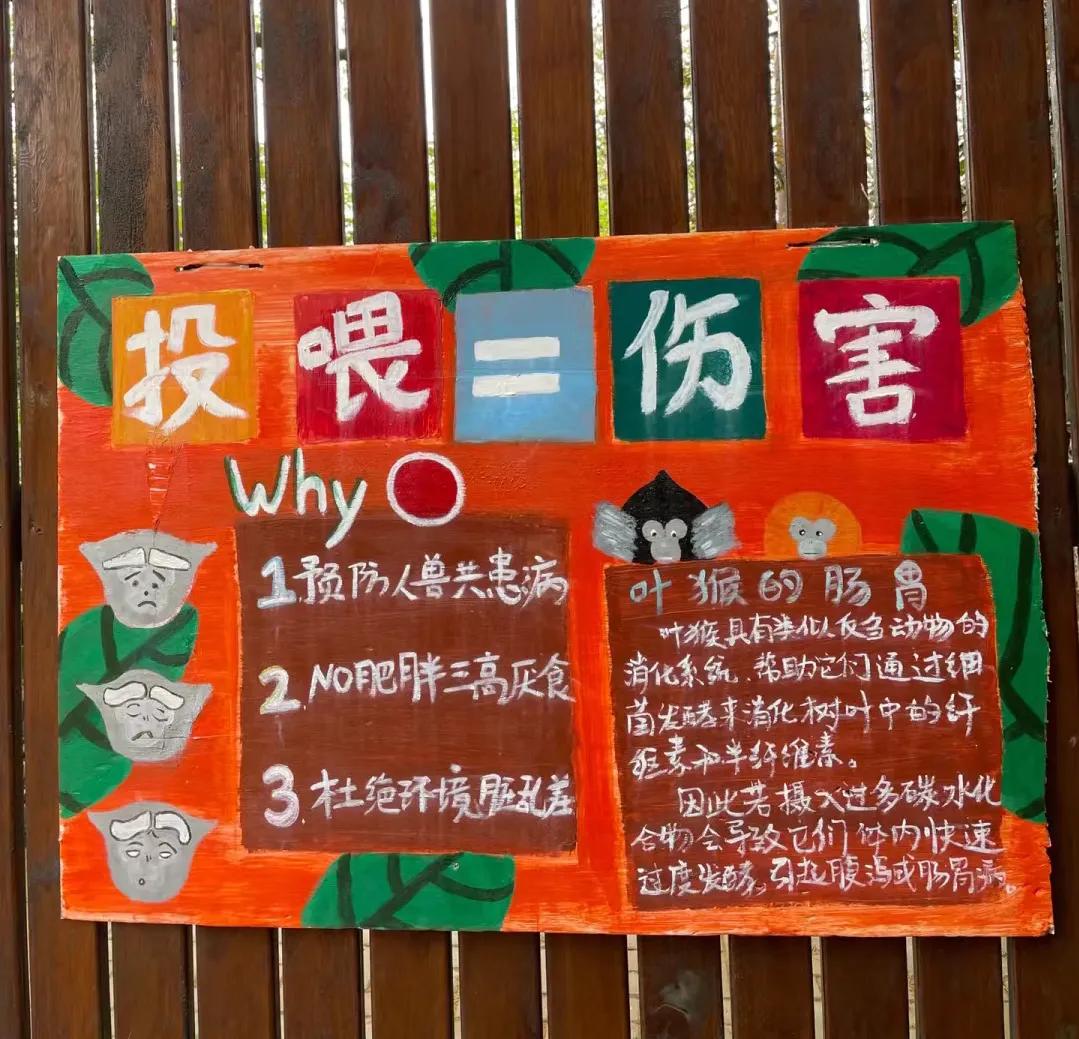 投喂=伤害
Why
1.预防人兽共患病
2.NO肥胖三高厌食
3.杜绝环境脏乱差
叶猴的肠胃
叶猴具有类似反刍动物的
消化系统、帮助它们通过细
菌发酵来消化树叶中的纤
维素和半纤维素。
因此若摄入过多碳水化
合物会导致它们体内快速
过度发酵,引起腹泻或肠胃病。